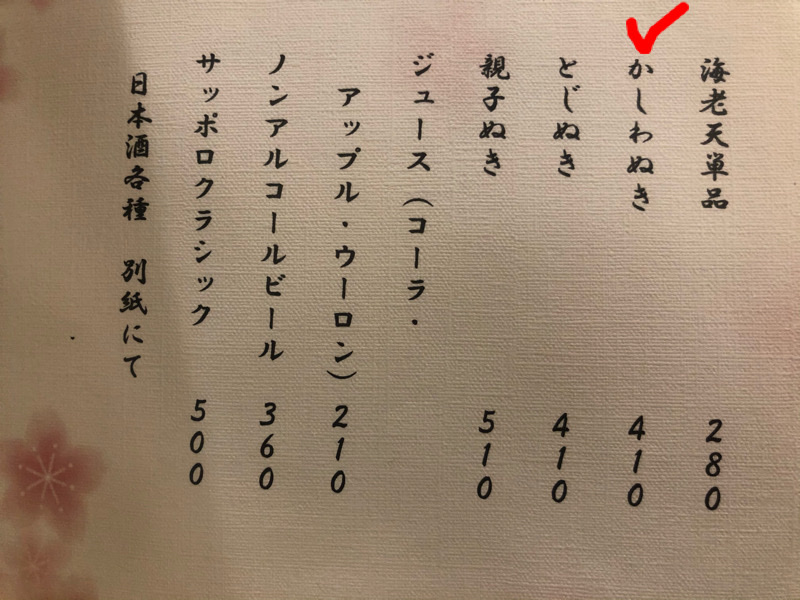 海老天単品 280
かしわぬき 410
とじぬき 410
親子ぬき 510
ジュース（コーラ・
アップル・ウーロン） 210
ノンアルコールビール 360
サッポロクラシック 500
日本酒各種 別紙にて